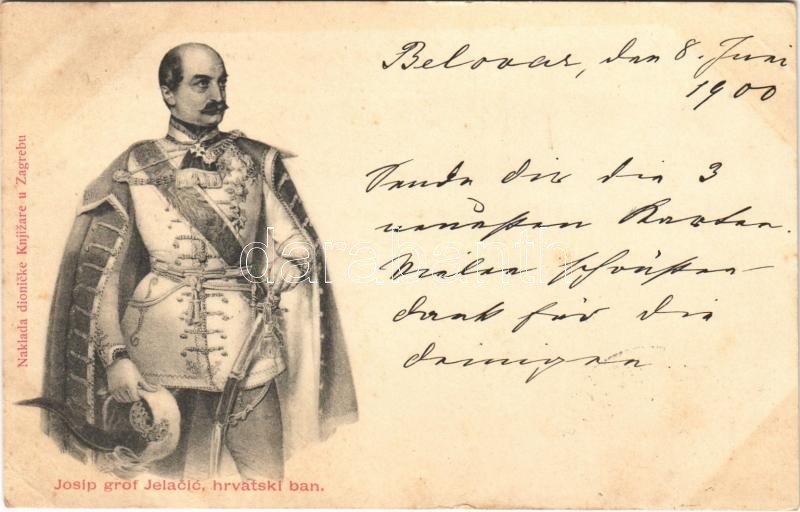 Belovar, den 8. Juni
1900
Sende dir die 3
neuesten Karten.
Vielen schönsten
dank für die
deinigen.
Nakladа dioničke Knjižare u Zagrebu
Josip grof Jelačić, hrvatski ban.
darabanth.com